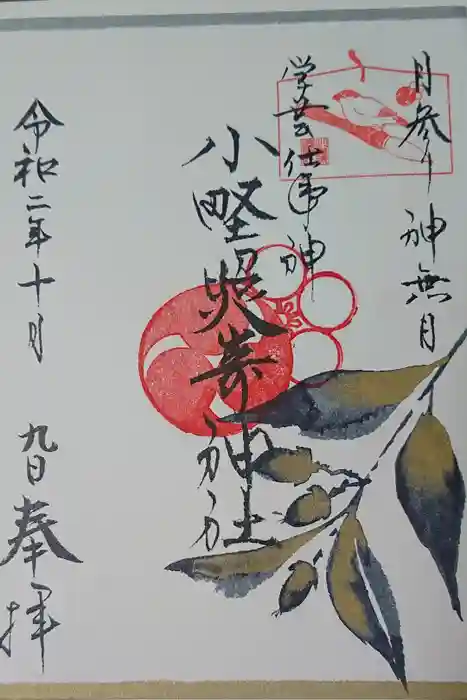 月参り 神無月
学芸仕事神
小野照崎神社
令和二年十月九日 奉拝